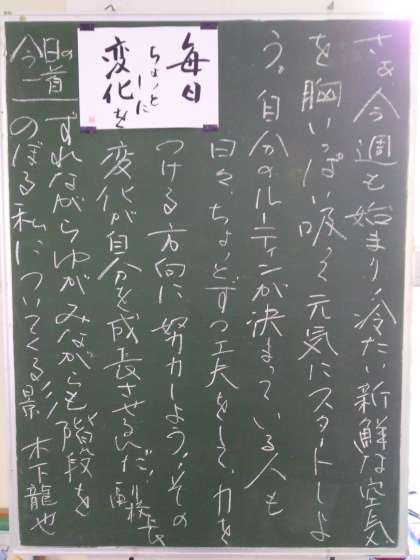 さあ今週も始まり!冷たい新鮮な空気
を胸いっぱい吸って元気にスタートしよ
う。自分のルーティンが決まっている人も
日々、ちょっとずつ工夫をして、力を
つける方向に努力しよう!その
変化が自分を成長させるんだ!副校長
毎日
ちょっと
したに
変化を
今日の一首
ずれながらゆがみながらも階段を
のぼる私についてくる影 木下龍也